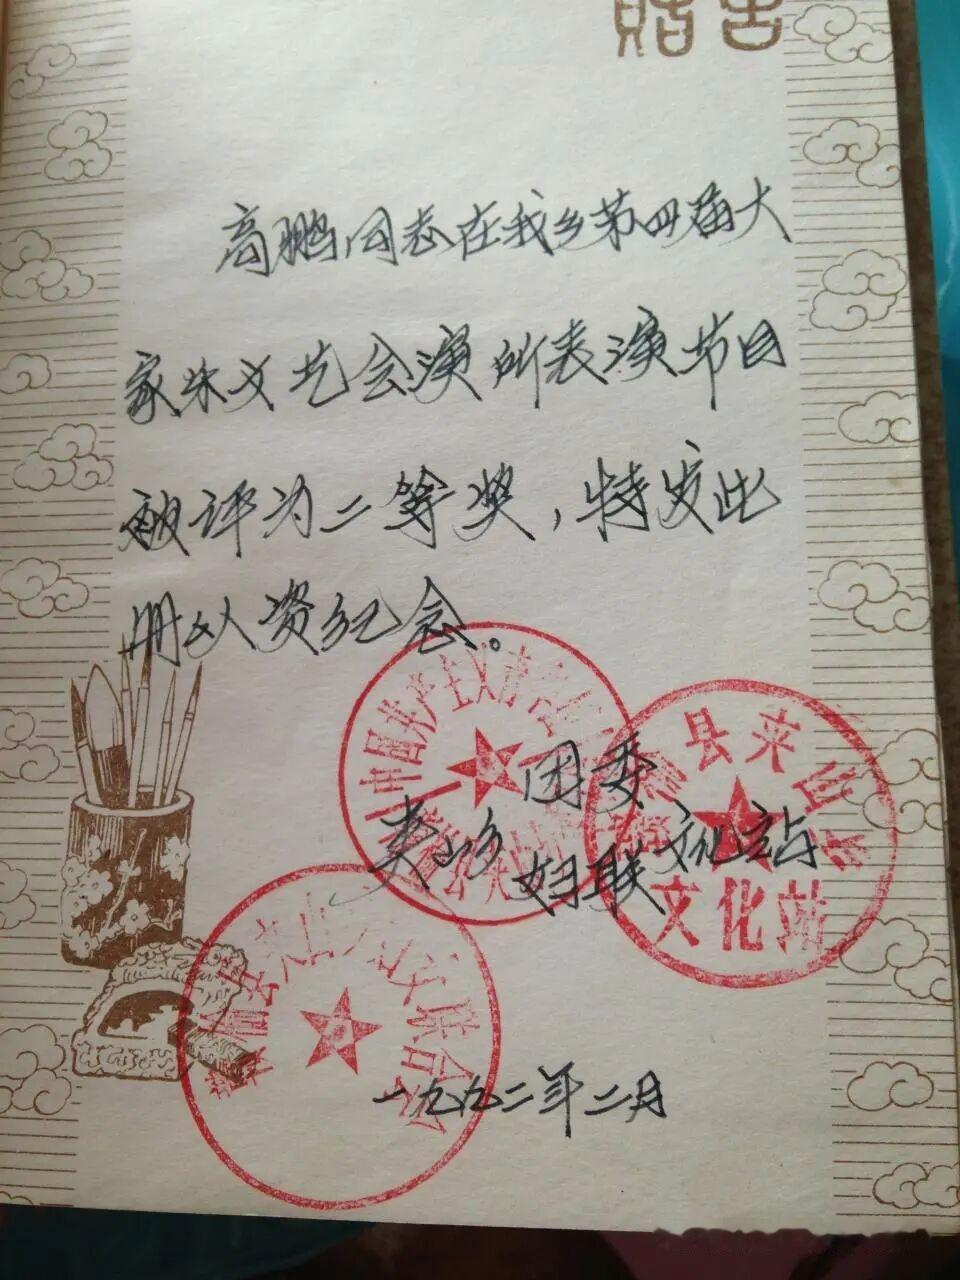 高鹏同志在我乡第四届大
家来文艺会演所表演节目
被评为二等奖，特发此
册以资纪念。
团委
夹山乡 妇联 文化站
县夹山乡
文化站
中国共产主义青年团
妇女联合会
一九九二年二月